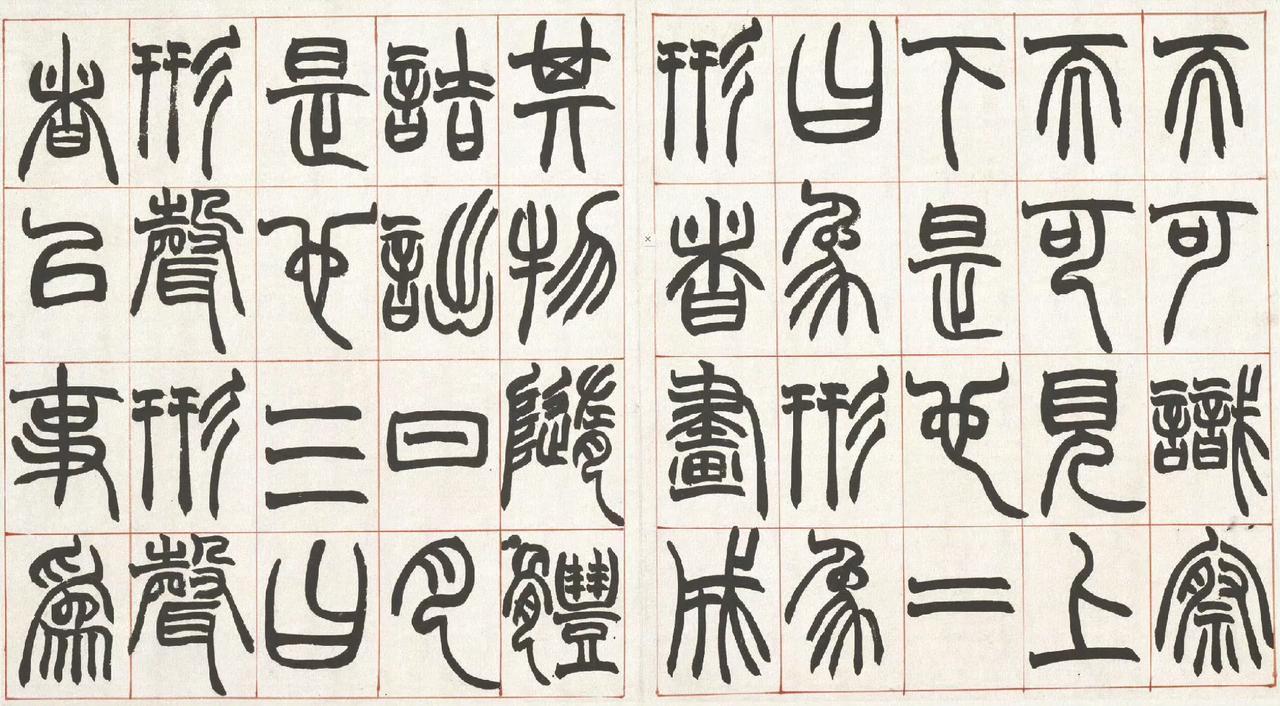 而可識察
而可見上
下是也二
曰象形象
形者畫成
其物隨體
詰詘日月
是也三曰
形聲形聲
者以事爲